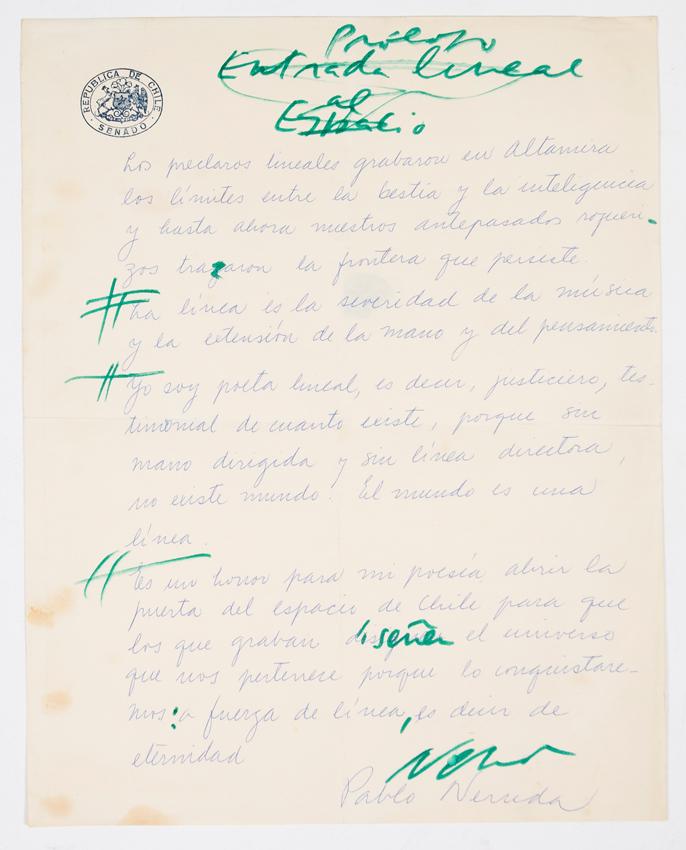 Prólogo
Entrada lineal
al
Espacio
REPUBLICA DE CHILE
SENADO
Los preclaros lineales grabaron en Altamira
los límites entre la bestia y la inteligencia
y hasta ahora nuestros antepasados roqueri-
zos trazaron la frontera que persiste.
La línea es la severidad de la música
y la extensión de la mano y del pensamiento.
Yo soy poeta lineal, es decir, justiciero, tes-
timonial de cuanto existe, porque sin
mano dirigida y sin línea directora,
no existe mundo. El mundo es una
línea.
Es un honor para mi poesía abrir la
puerta del espacio de Chile para que
los que graban diseñen el universo
que nos pertenece porque lo conquistare-
mos: a fuerza de línea, es decir de
eternidad
Pablo Neruda